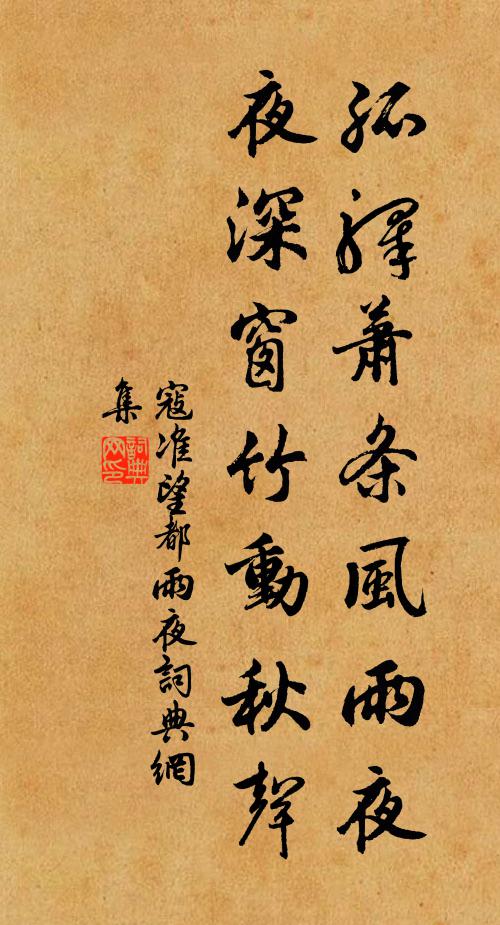 孤驛蕭条風雨夜
夜深窗竹動秋聲
寇准望都雨夜詞典網
集
詞典網印